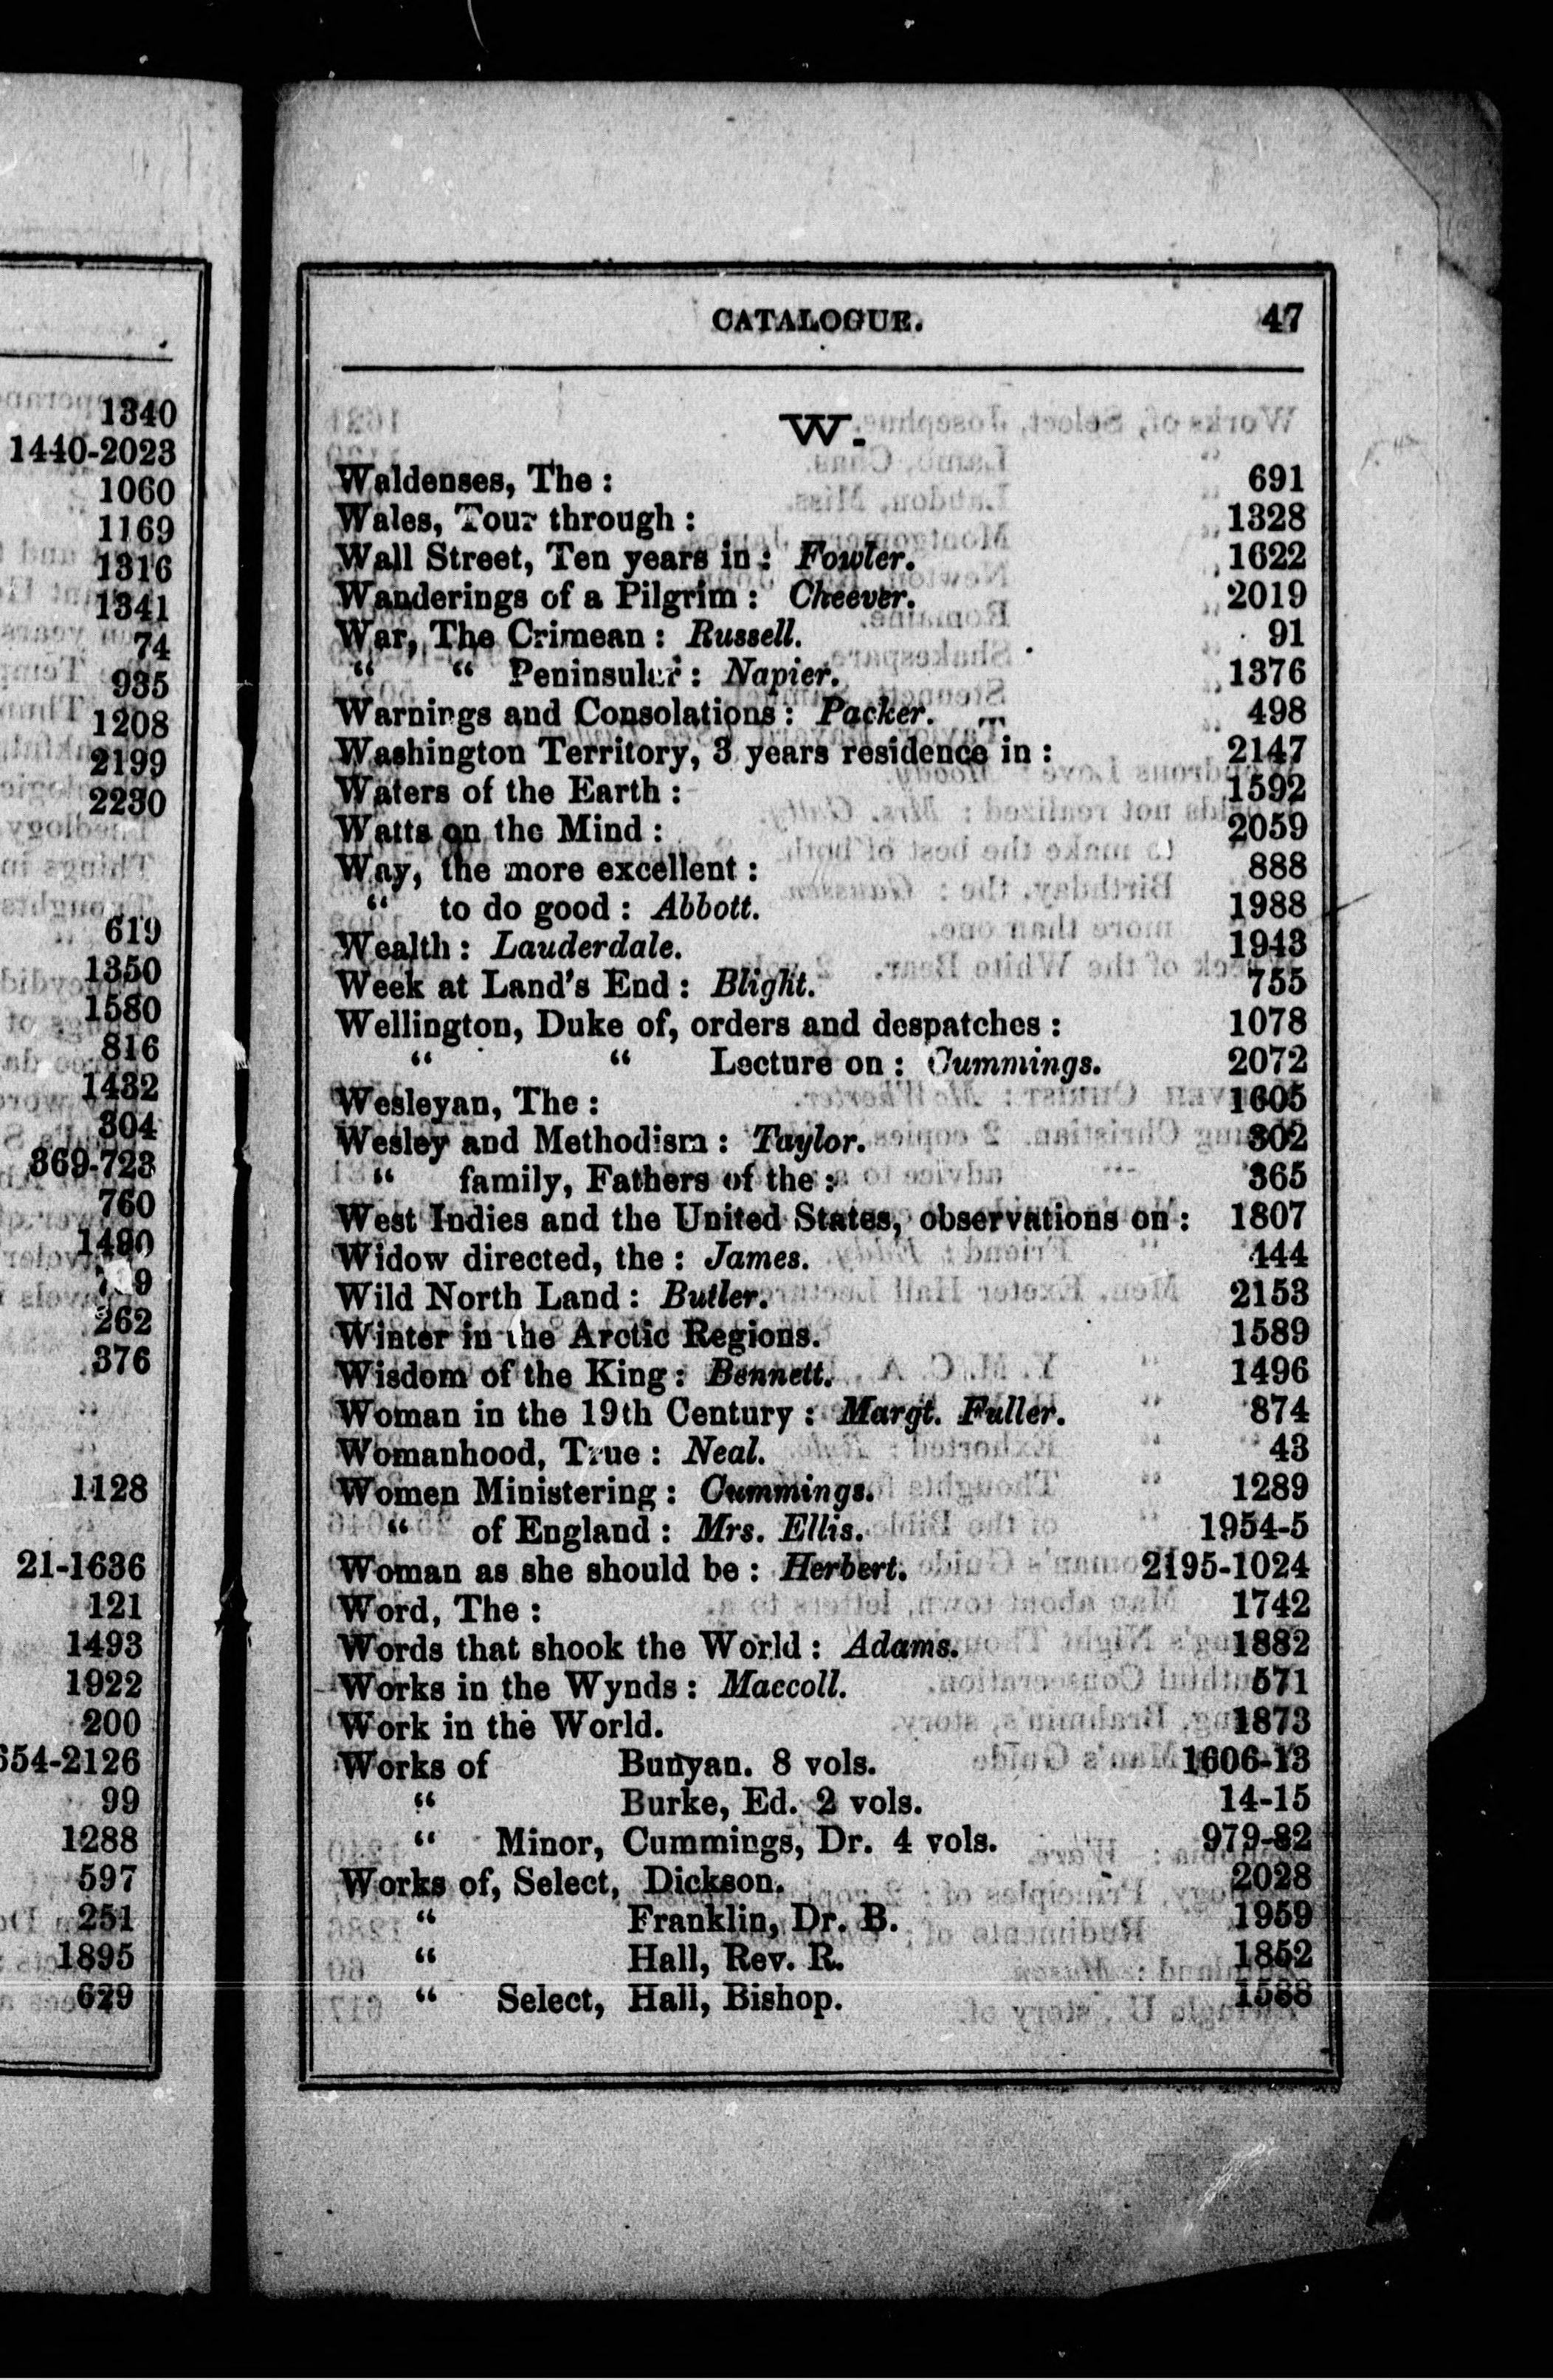 1340
1440-2023
1060
1169
1316
1341
74
935
1208
2199
2230
619
1350
1580
816
1432
304
369-723
760
1490
262
376
1128
21-1636
121
1493
1922
200
654-2126
99
1288
597
251
1895
629
CATALOGUE. 47
W.
Waldenses, The : 691
Wales, Tour through : 1328
Wall Street, Ten years in : Fowler. 1622
Wanderings of a Pilgrim : Cheever. 2019
War, The Crimean : Russell. 91
“ “ Peninsular : Napier. 1376
Warnings and Consolations : Packer. 498
Washington Territory, 3 years residence in : 2147
Waters of the Earth : 1592
Watts on the Mind : 2059
Way, the more excellent : 888
“ to do good : Abbott. 1988
Wealth : Lauderdale. 1943
Week at Land's End : Blight. 755
Wellington, Duke of, orders and despatches : 1078
“ “ Lecture on : Cummings. 2072
Wesleyan, The : 1605
Wesley and Methodism : Taylor. 302
“ family, Fathers of the : 365
West Indies and the United States, observations on : 1807
Widow directed, the : James. 444
Wild North Land : Butler. 2153
Winter in the Arctic Regions. 1589
Wisdom of the King : Bennett. 1496
Woman in the 19th Century : Margt. Fuller. 874
Womanhood, True : Neal. 43
Women Ministering : Cummings. 1289
“ of England : Mrs. Ellis. 1954-5
Woman as she should be : Herbert. 2195-1024
Word, The : 1742
Words that shook the World : Adams. 1882
Works in the Wynds : Maccoll. 571
Work in the World. 1873
Works of Bunyan. 8 vols. 1606-13
“ Burke, Ed. 2 vols. 14-15
“ Minor, Cummings, Dr. 4 vols. 979-82
Works of, Select, Dickson. 2028
“ Franklin, Dr. B. 1959
“ Hall, Rev. R. 1852
“ Select, Hall, Bishop. 1588